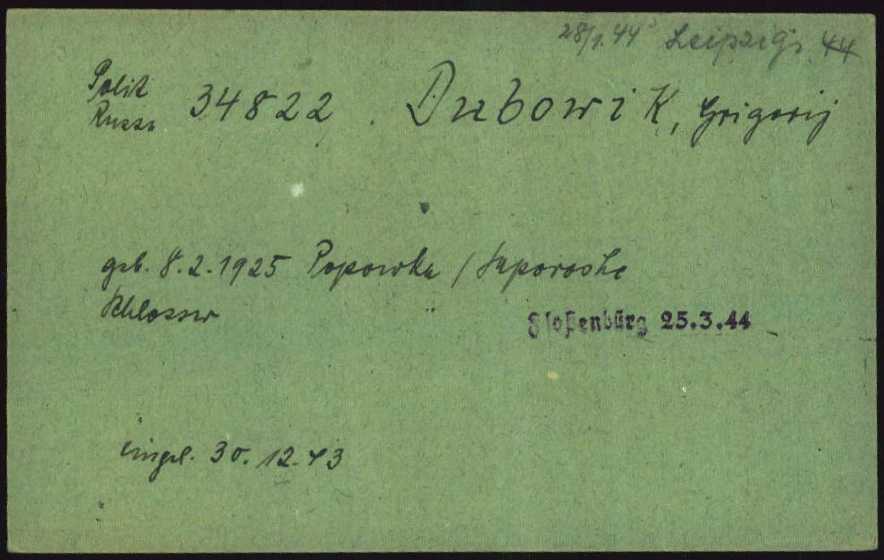 28/1.44 Leipzig
Polit
Russe 34822. Dubowik, Grigorij
geb. 8.2.1925 Popowka / Saporoshe
Schlosser
Floßenbürg 25.3.44
eingel. 30.12.43